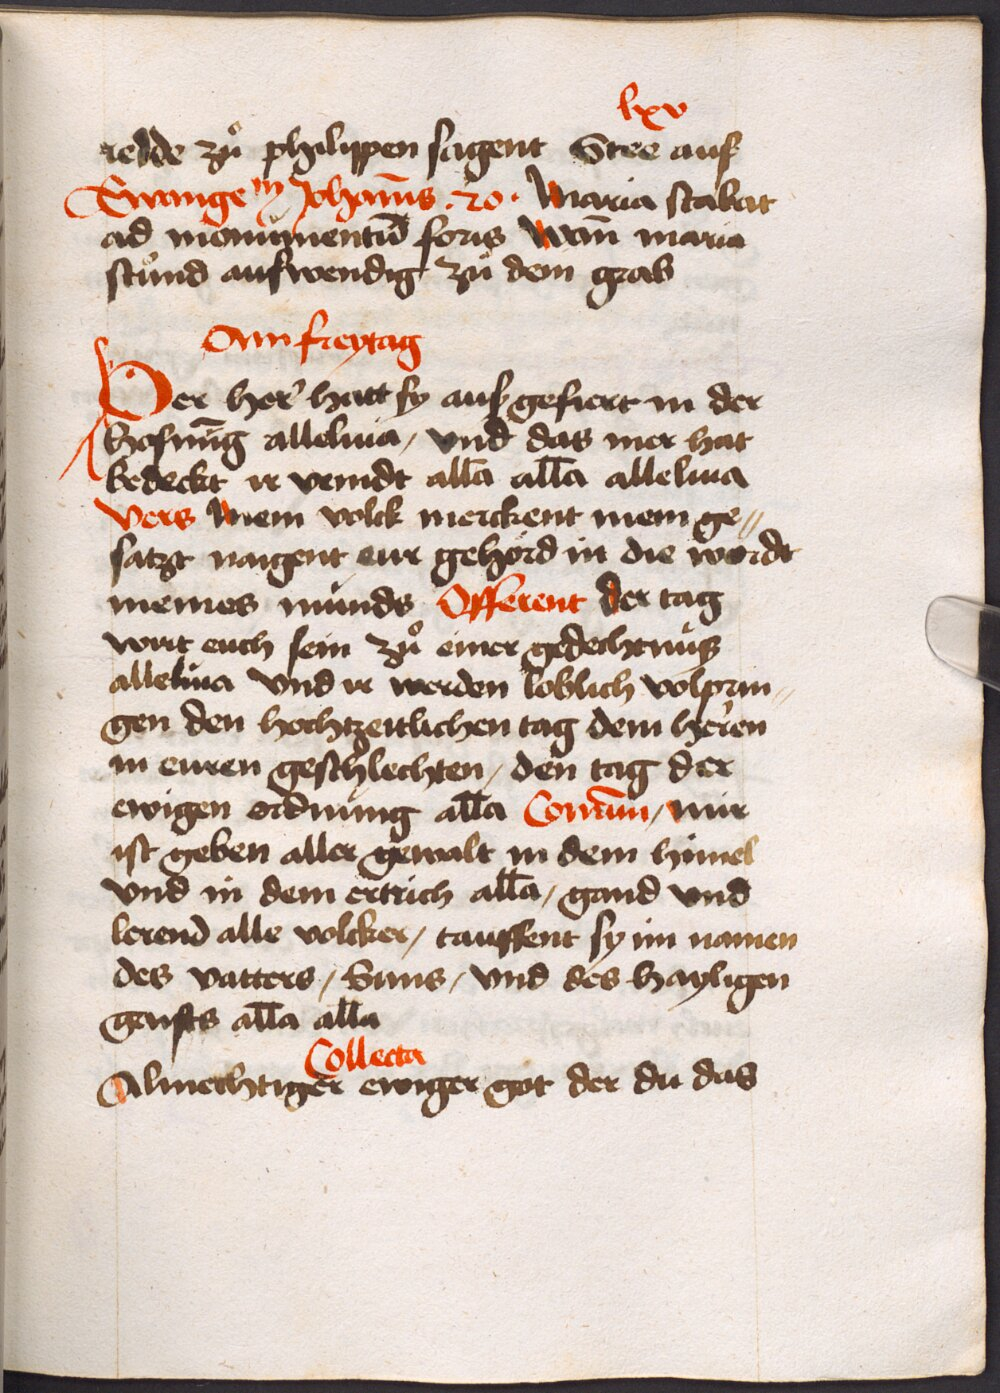 lxv
redde zuͦ philippen sagent Stee auf
Ewangeᵐ Johan̄is . 20 . Maria stabat
ad monumentū foris Wan̄ maria
stuͦnd aufwendig zuͦ dem grab
Am freytag
Der her̄ hatt sy auß gefiert in der
hofnūg alleluia / vnd das mer hat
bedeckt ir veindt all̄a all̄a alleluia
Vers Mein volck merckent mein ge //
satzt naigent eur gehörd in die wordt
meines munds Offerent der tag
wirt euch sein zuͦ einer gedechtnuß
alleluia Vnd ir werden loblich volprin //
gen den hochtzeitlichen tag dem herren
in euren geschlechten / den tag der
ewigen ordnung all̄a Com̄un / Mir
ist geben aller gewalt in dem himel
vnd in dem ertrich all̄a / gand vnd
lerend alle volcker / tauffent sy im namen
des vatters / Suns / vnd des hayligen
gaists all̄a all̄a
Collecta
Almechtiger ewiger got der du das